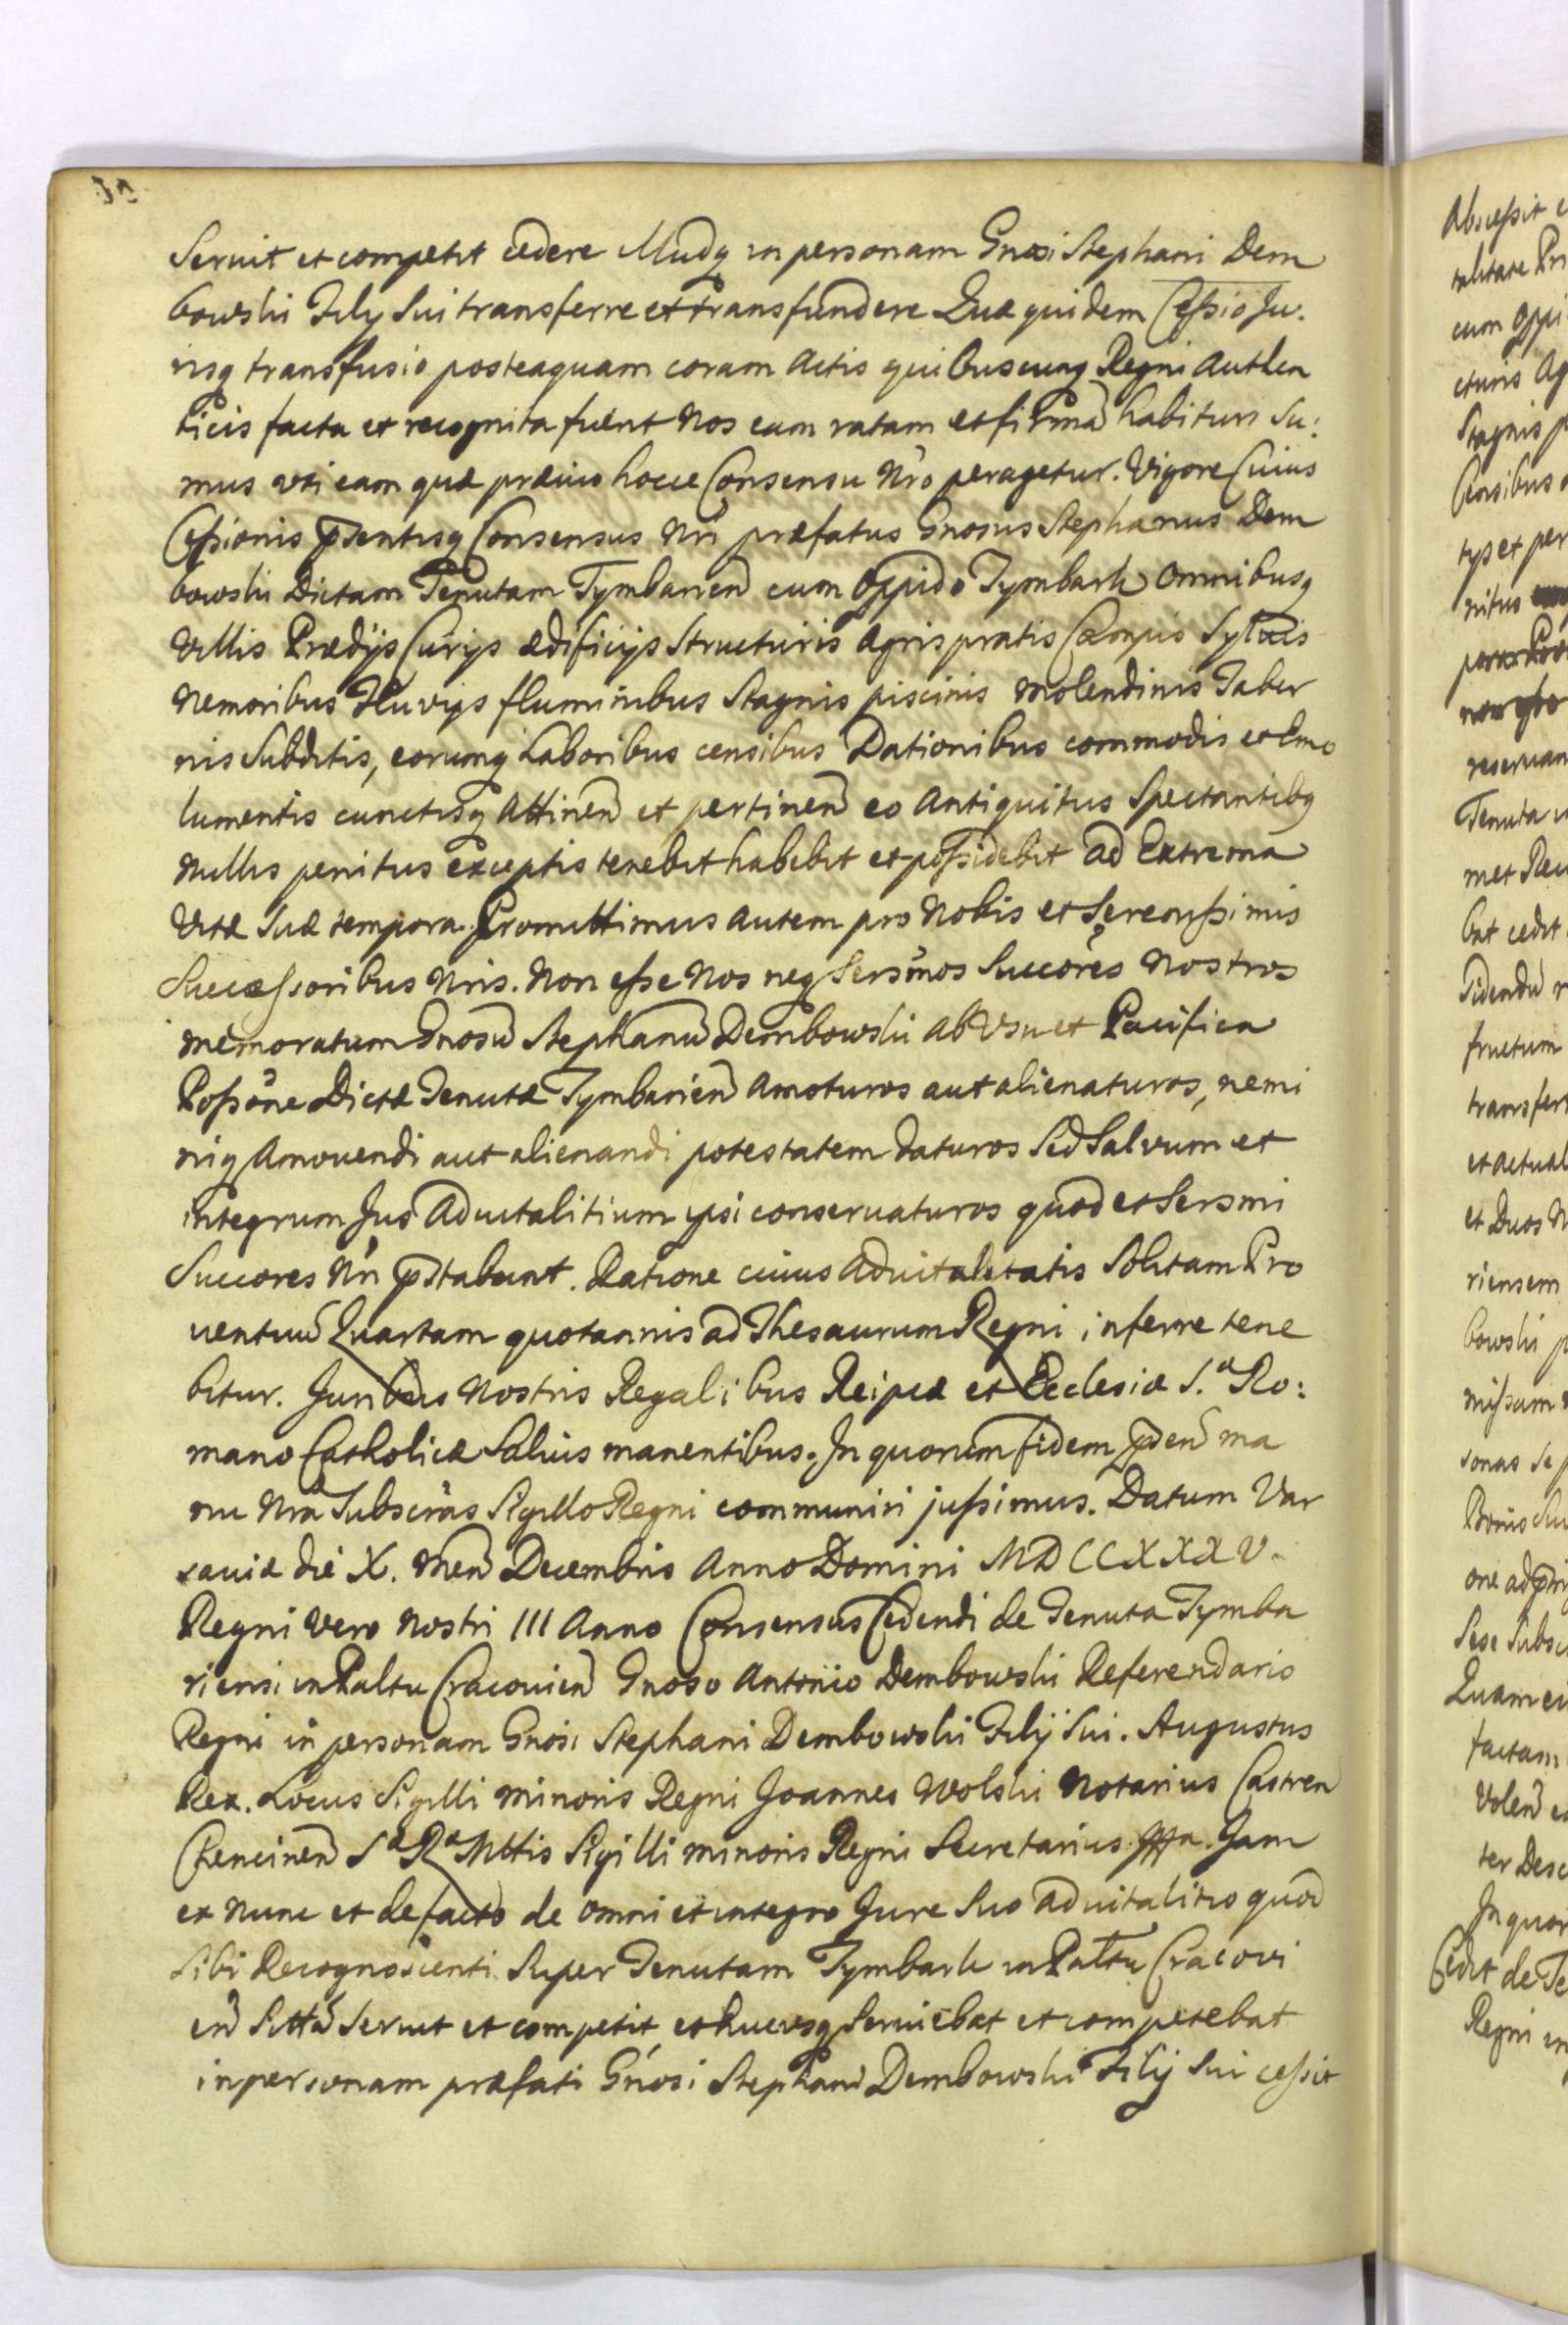 Servit et competit cedere illudq in personam Gnosi Stephani Dem
bowski Filij Sui transferre et transfundere Quæ quidem Cessio Ju:
risq transfusio posteaquam coram Actis quibuscunq Regni Authen
ticis facta et recognita fuerit Nos eam ratam et firmã habituri Su:
mus uti eam quæ prævio hocce Consensu Nro peragetur. Vigore Cuius
Cessionis pñsentisq Consensus Nri præfatus Gnosus Stephanus Dem
bowski Dictam Tenutam Tymbarien cum Oppido Tymbark Omnibusq
Villis Prædijs Curijs ædificijs Structuris Agris pratis Campis Sylvis
Nemoribus Fluvijs fluminibus Stagnis piscinis Molendinis Taber
nis Subditis, eorumq Laboribus censibus Dationibus commodis et Emo
lumentis cunctisq Attinen et pertinen eo Antiquitus Spectantibq
Nullis penitus exceptis tenebit habebit et possidebit ad Extrema
Vitæ Suæ tempora. Promittimus autem pro Nobis et Serenissimis
Successoribus Nris. Non esse Nos neq Sersmos Succores Nostros
memoratum Gnosũ Stephanũ Dembowski Ab Usu et Pacifica
Possõne Dictæ Tenutæ Tymbarien Amoturos aut alienaturos, nemi
niq Amovendi aut alienandi potestatem daturos Sed Salvum et
integrum Jus Advitalitium ipsi conservaturos quod et Sersmi
Succores Nri pstabunt. Ratione cuius Advitalitatis Solitam Pro
ventuũ Quartam quotannis ad Thesaurum Regni inferre tene
bitur. Juribus Nostris Regalibus Reipcæ et Ecclesiæ S.æ Ro:
mano Catholicæ Salvis manentibus. In quorum fidem pñsen ma
nu Nra Subscras Sigillo Regni communiri jussimus. Datum Var
saviæ die X. Men Decembris Anno Domini MDCCXXXV.
Regni Vero Nostri III Anno Consensus Cedendi de Tenuta Tymba
riensi in Paltu Cracovien Gnoso Antonio Dembowski Referendario
Regni in personam Gnosi Stephani Dembowski Filij Sui. Augustus
Rex. Locus Sigilli Minoris Regni Joannes Wolski Notarius Castren
Checinen Sæ Ræ Mttis Sigilli minoris Regni Secretarius mpa. Jam
ex Nunc et de facto de omni et integro Jure Suo advitalitio quod
Sibi Recognoscenti Super Tenutam Tymbark in Paltu Cracovi
en Sittã Servit et competit et hucusq Serviebat et competebat
in personam præfati Gnosi Stephani Dembowski Filij Sui cessit